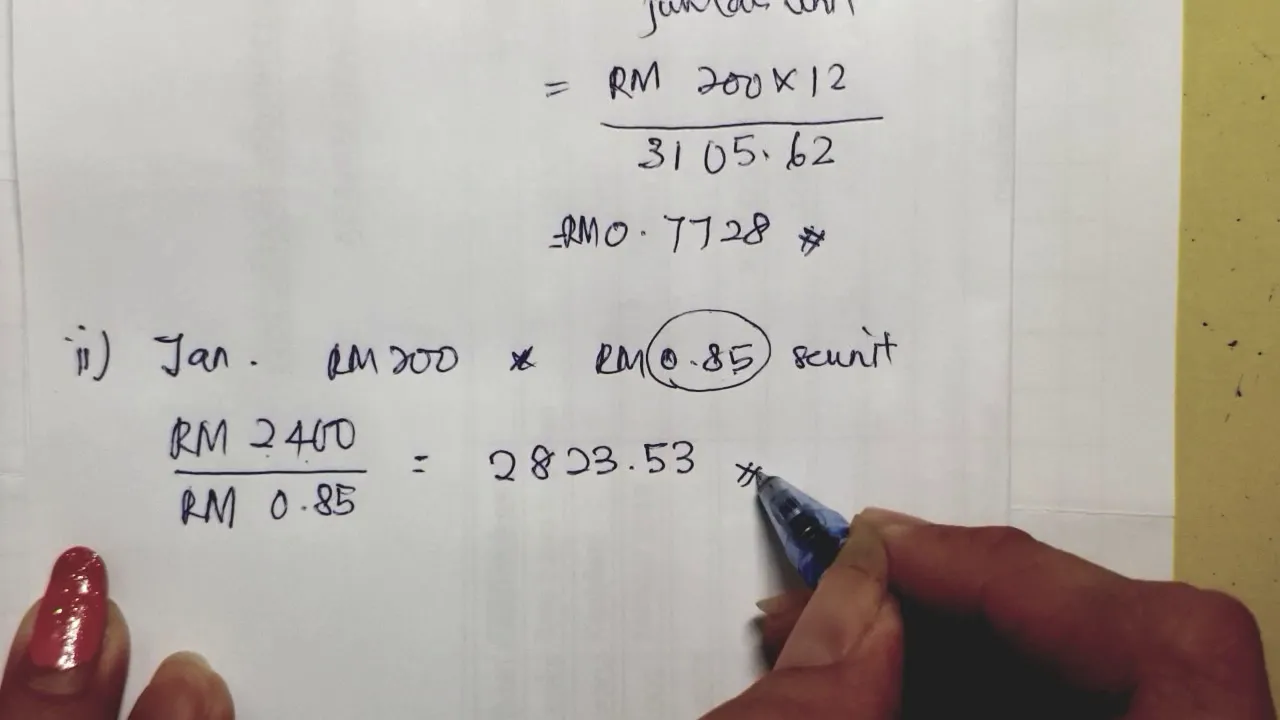 = RM 200 x 12
3105.62
= RM0.7728 #
ii) Jan. RM200 * RM0.85 seunit
RM 2400 = 2823.53 #
RM 0.85